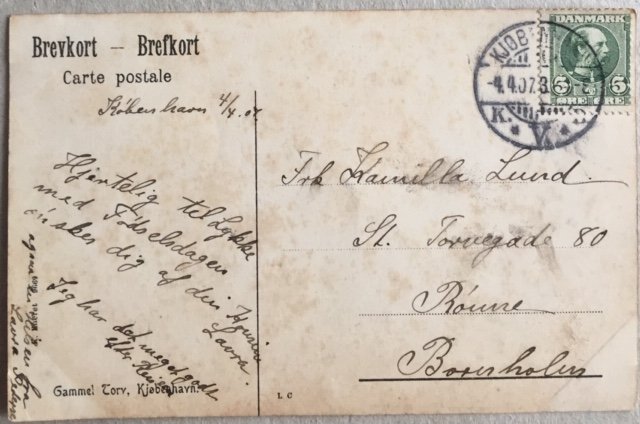 Brevkort – Brefkort
Carte postale
København 4/4 07
Hjertelig til Lykke
med Fødselsdagen
ønskes dig af din Kusine
Laura.
Jeg har det meget godt
efter Rejsen
Laura
Frk Kamilla Lund.
St. Torvegade 80
Rönne
Bornholm
DANMARK
5 5
ØRE ØRE
KJØB
-4.4.07.3
K. V.
Gammel Torv, Kjøbenhavn.
I. C